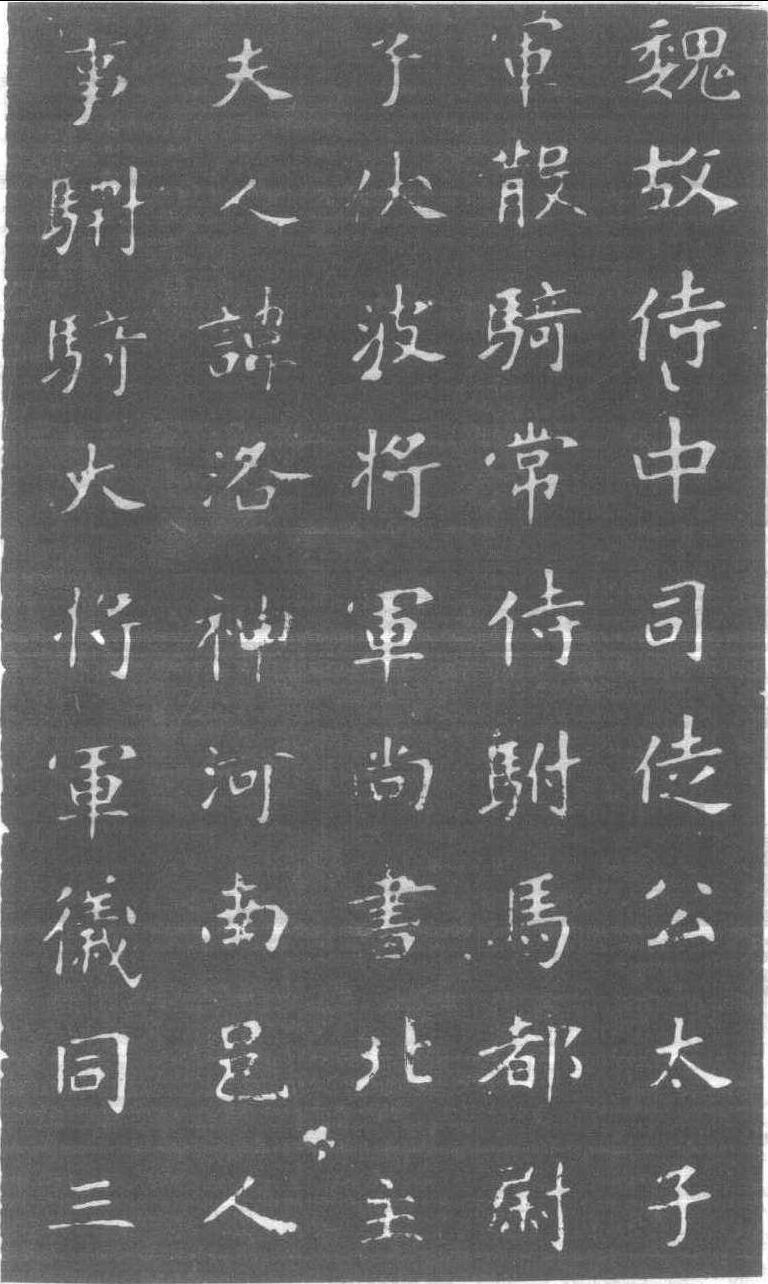 魏故侍中司徒公太子
軍散騎常侍駙馬都尉
子伏波將軍尚書北主
夫人諱洛神河南邑人
事驃騎大將軍儀同三